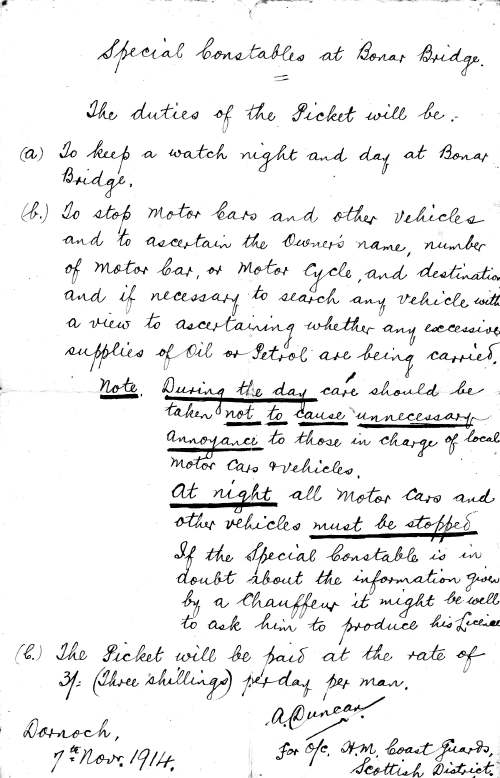 Special Constables at Bonar Bridge.
The duties of the Picket will be:
(a) To keep a watch night and day at Bonar
Bridge.
(b.) To stop Motor Cars and other Vehicles
and to ascertain the Owner's name, number
of Motor Car, or Motor Cycle, and destination
and if necessary to search any vehicle with
a view to ascertaining whether any excessive
supplies of Oil or Petrol are being carried.
Note. During the day care should be
taken not to cause unnecessary
annoyance to those in charge of local
Motor Cars & Vehicles.
At night all Motor Cars and
other vehicles must be stopped
If the Special Constable is in
doubt about the information given
by a Chauffeur it might be well
to ask him to produce his Licence
(C.) The Picket will be paid at the rate of
3/- (Three shillings) per day per man.
A. Duncan.
Dornoch,
7th Novr. 1914.
for O/c. H.M. Coast Guards,
Scottish District.